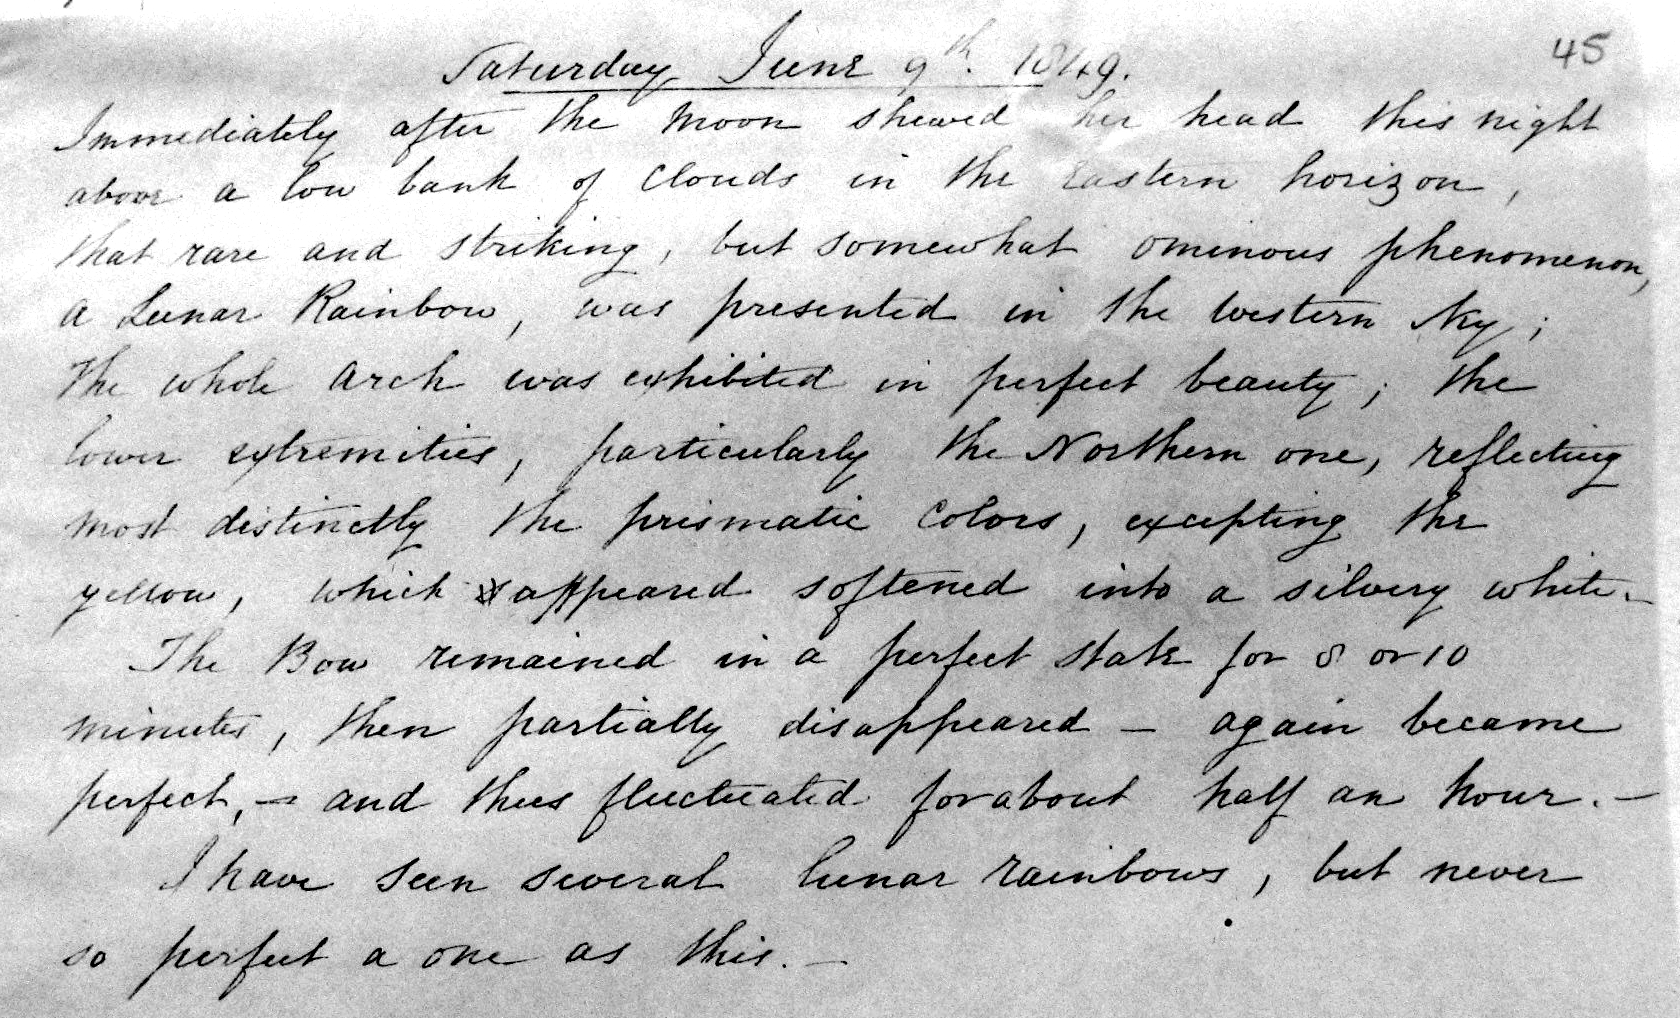 45
Saturday June 9th. 1849.
Immediately after the Moon shewed her head this night
above a low bank of Clouds in the Eastern horizon,
that rare and striking, but somewhat ominous phenomenon,
a Lunar Rainbow, was presented in the Western sky;
The whole arch was exhibited in perfect beauty; the
lower extremities, particularly the Northern one, reflecting
most distinctly the prismatic Colors, excepting the
yellow, which appeared softened into a silvery white. —
The Bow remained in a perfect state for 8 or 10
minutes, then partially disappeared — again became
perfect, — and thus fluctuated for about half an hour. —
I have seen several lunar rainbows, but never
so perfect a one as this. —